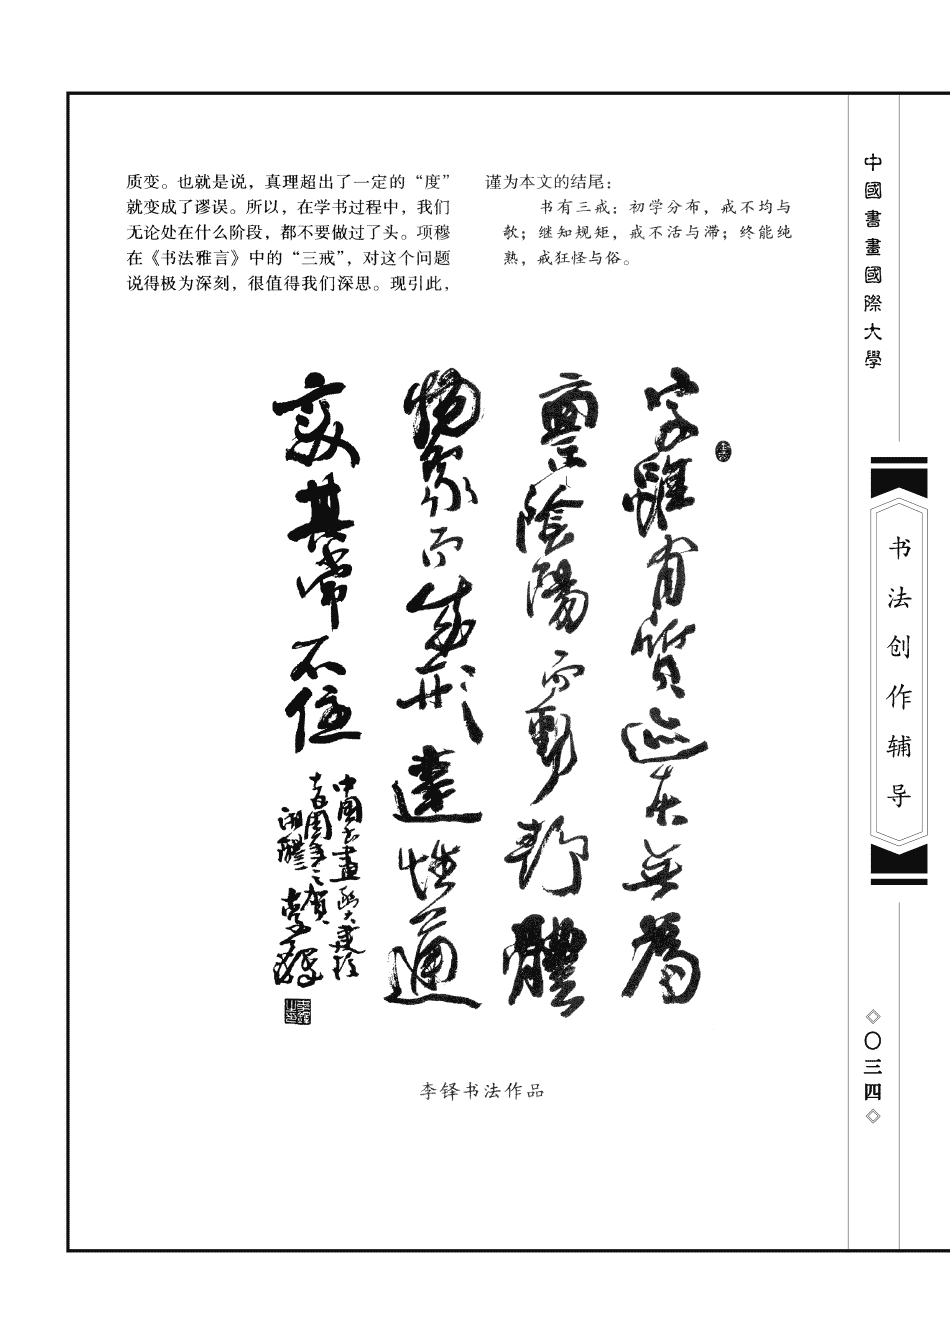 质变。也就是说，真理超出了一定的“度”
就变成了谬误。所以，在学书过程中，我们
无论处在什么阶段，都不要做过了头。项穆
在《书法雅言》中的“三戒”，对这个问题
说得极为深刻，很值得我们深思。现引此，
谨为本文的结尾：
书有三戒：初学分布，戒不均与
欹；继知规矩，戒不活与滞；终能纯
熟，戒狂怪与俗。
字雖有質迹本無為
禀陰陽而動静體
物象而成形達性通
變其常不住
中國书畫函大建校
十五周年之賀
李鐸
李铎书法作品
中國書畫國際大學
书法创作辅导
◇〇三四◇